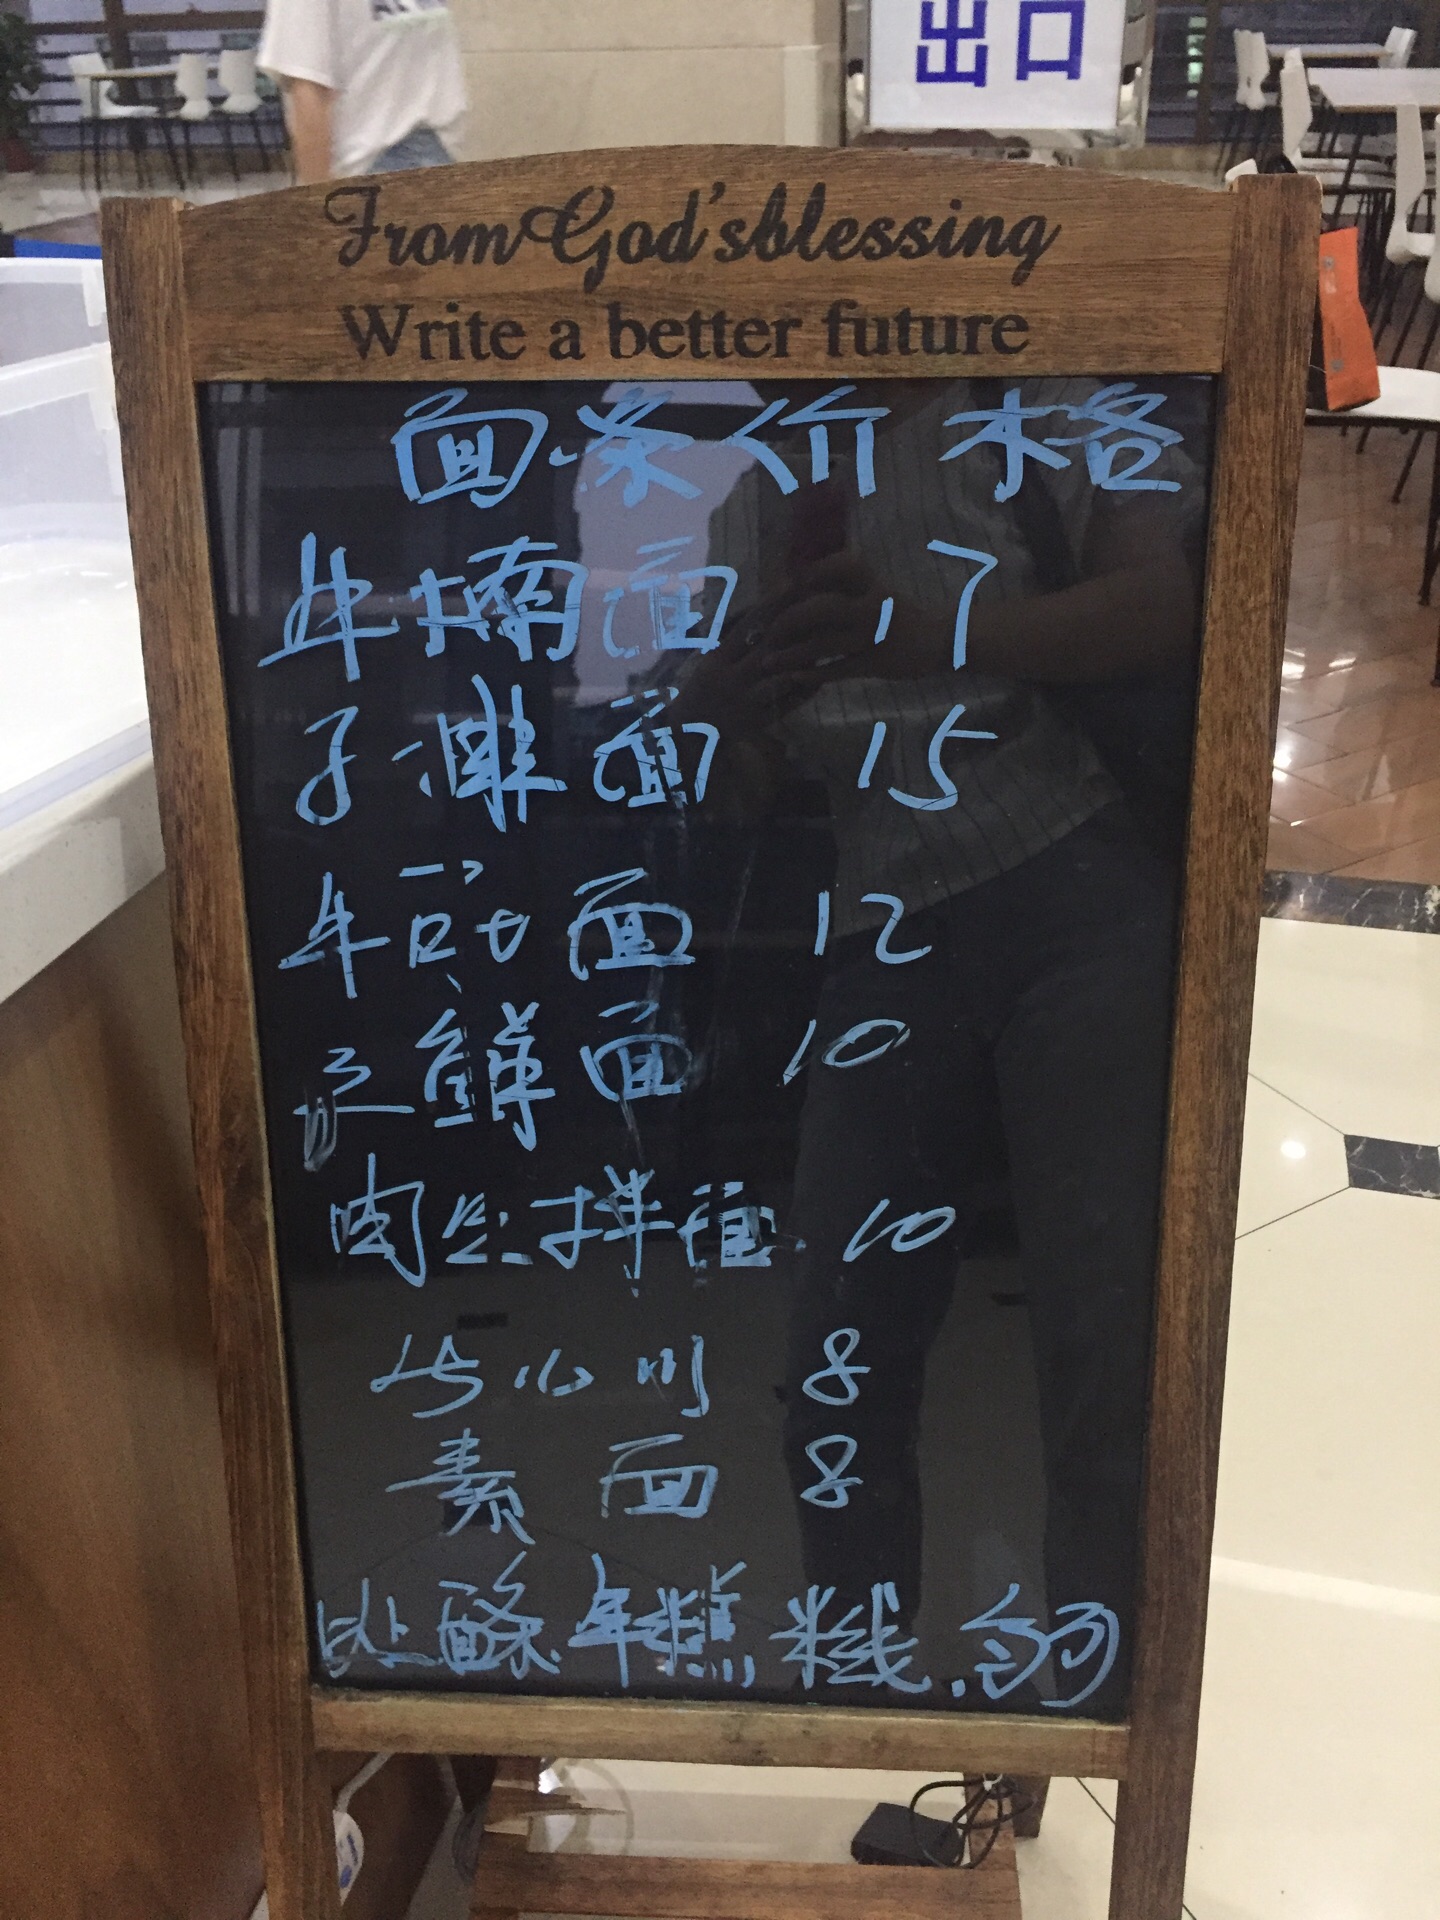 出口
From God'sblessing
Write a better future
面条价格
牛腩面 17
子排面 15
牛 面 12
面 10
肉丝拌面 10
8
素面 8
酥 年糕